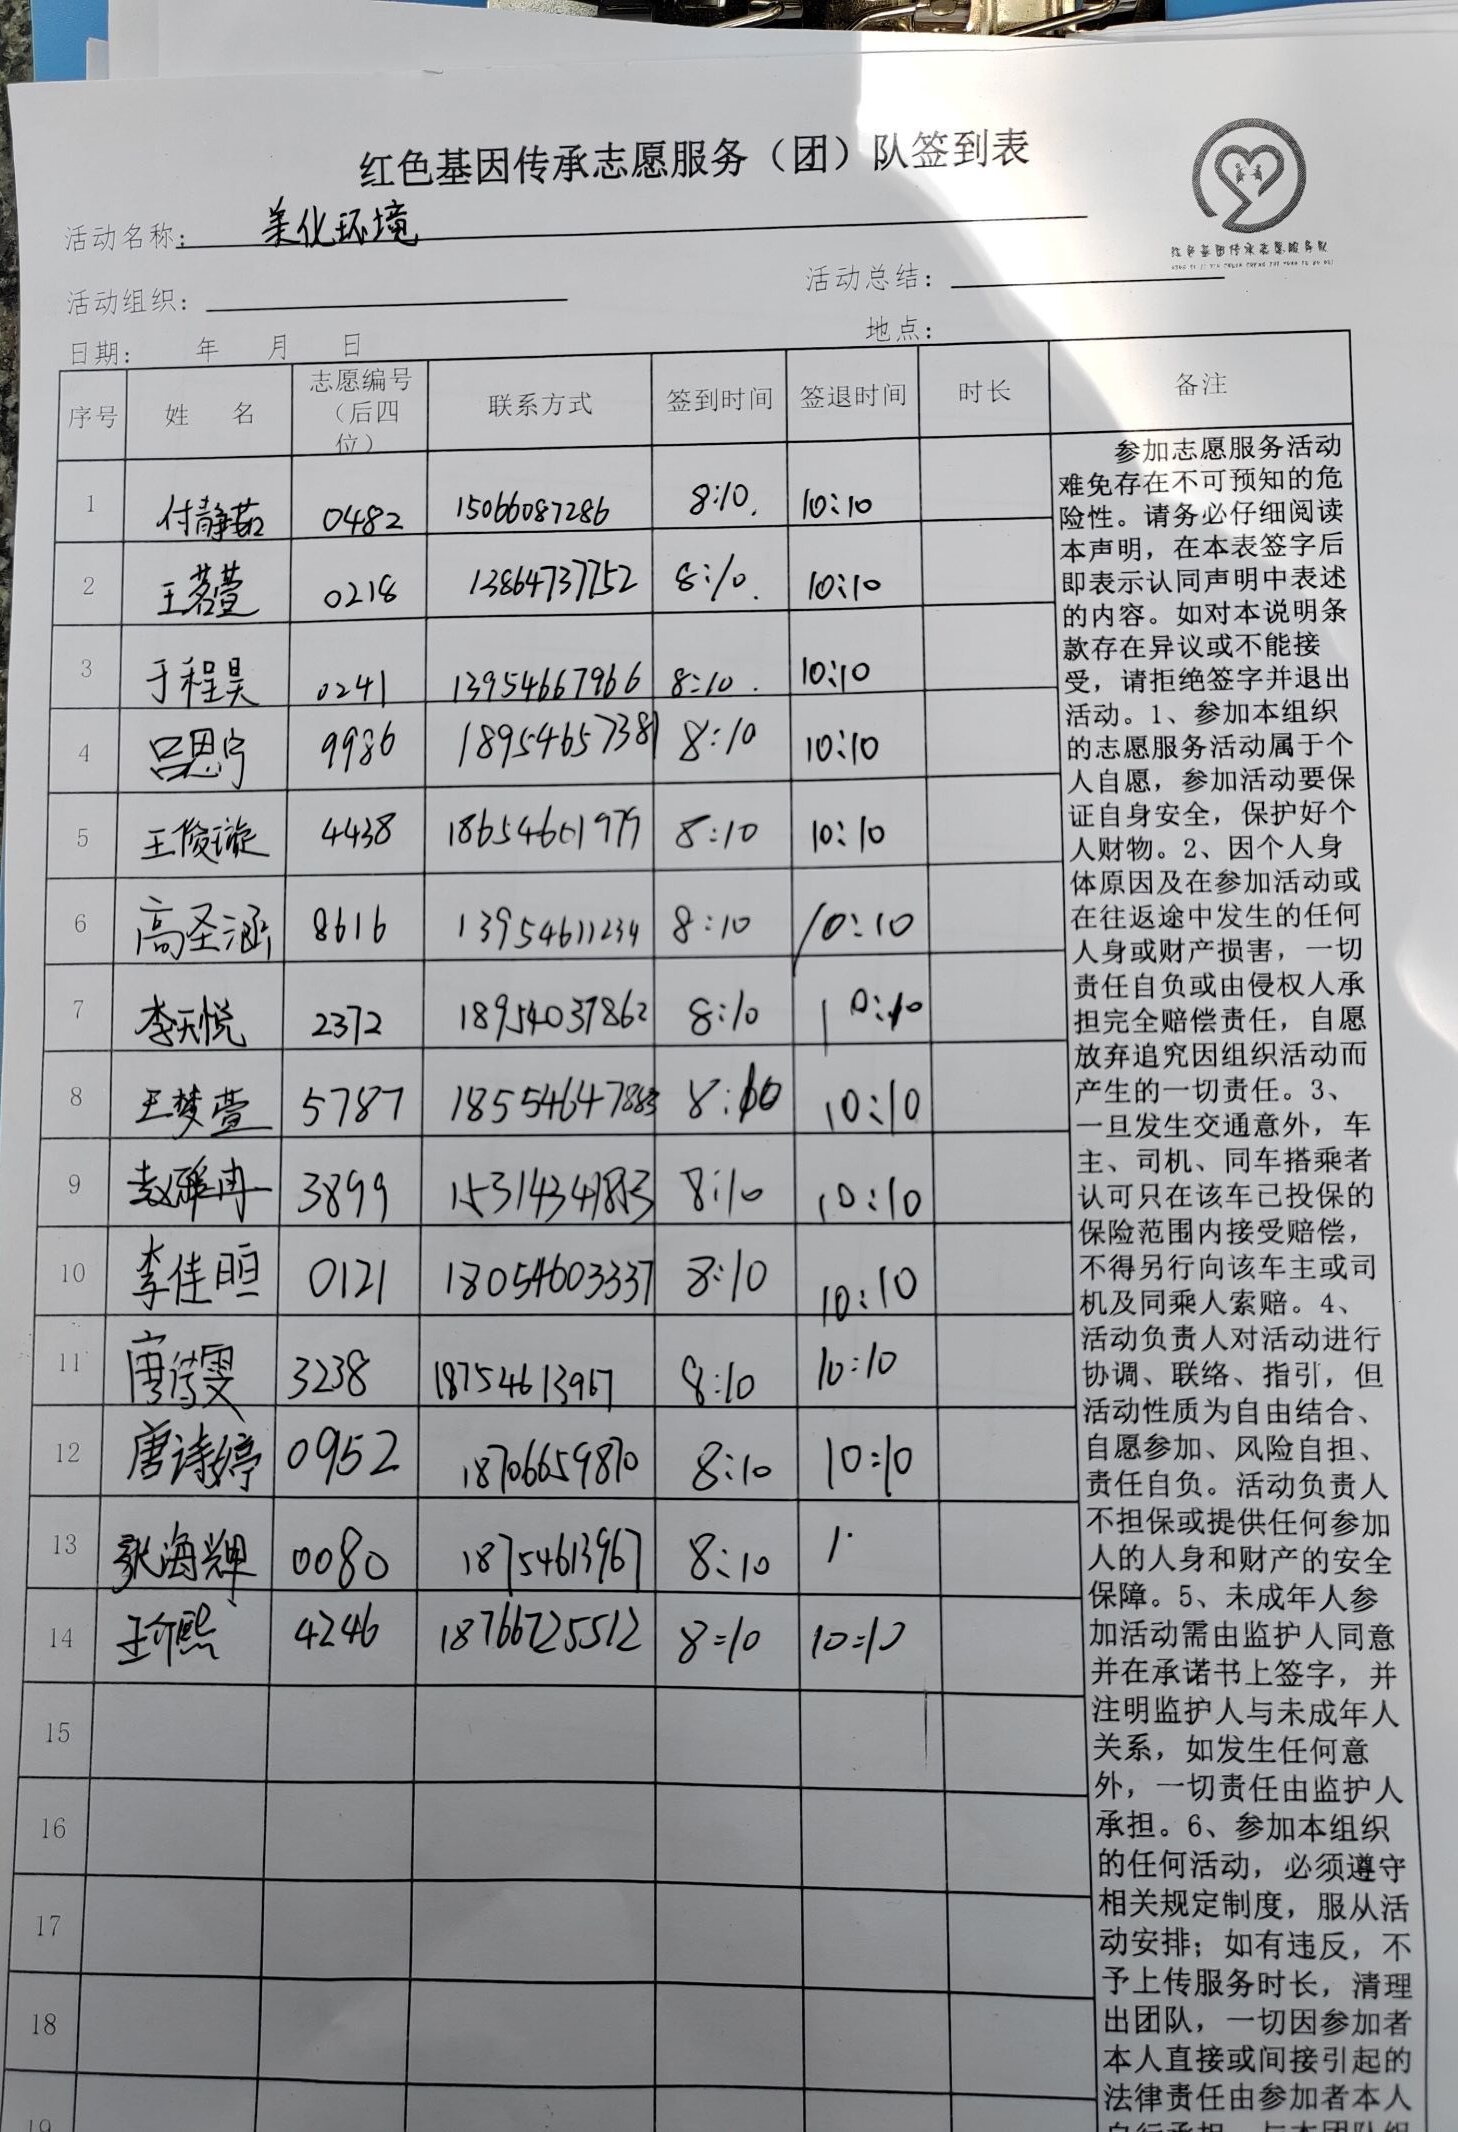 红色基因传承志愿服务（团）队签到表
活动名称： 美化环境
红色基因传承志愿服务队
活动组织：
活动总结：
日期： 年 月 日
地点：
序号 姓 名 志愿编号（后四位） 联系方式 签到时间 签退时间 时长 备注
1 付静茹 0482 15066087286 8:10. 10:10
2 王茗萱 0218 13864737752 8:10. 10:10
3 于程昊 0241 13954667966 8:10. 10:10
4 吕思宁 9986 18954657381 8:10 10:10
5 王俊璇 4438 18654601979 8:10 10:10
6 高圣涵 8616 13954611234 8:10 10:10
7 李天悦 2372 18954037862 8:10 10:10
8 王梦萱 5787 18554647883 8:10 10:10
9 赵雅冉 3899 15314341853 8:10 10:10
10 李佳 0121 18054603337 8:10 10:10
11 唐雯 3238 18754613967 8:10 10:10
12 唐诗婷 0952 18706659870 8:10 10:10
13 张海辉 0080 18754613967 8:10 1.
14 王熙 4246 18766725512 8:10 10:10
15
16
17
18
19
参加志愿服务活动
难免存在不可预知的危
险性。请务必仔细阅读
本声明，在本表签字后
即表示认同声明中表述
的内容。如对本说明条
款存在异议或不能接
受，请拒绝签字并退出
活动。1、参加本组织
的志愿服务活动属于个
人自愿，参加活动要保
证自身安全，保护好个
人财物。2、因个人身
体原因及在参加活动或
在往返途中发生的任何
人身或财产损害，一切
责任自负或由侵权人承
担完全赔偿责任，自愿
放弃追究因组织活动而
产生的一切责任。3、
一旦发生交通意外，车
主、司机、同车搭乘者
认可只在该车已投保的
保险范围内接受赔偿，
不得另行向该车主或司
机及同乘人索赔。4、
活动负责人对活动进行
协调、联络、指引，但
活动性质为自由结合、
自愿参加、风险自担、
责任自负。活动负责人
不担保或提供任何参加
人的人身和财产的安全
保障。5、未成年人参
加活动需由监护人同意
并在承诺书上签字，并
注明监护人与未成年人
关系，如发生任何意
外，一切责任由监护人
承担。6、参加本组织
的任何活动，必须遵守
相关规定制度，服从活
动安排；如有违反，不
予上传服务时长，清理
出团队，一切因参加者
本人直接或间接引起的
法律责任由参加者本人